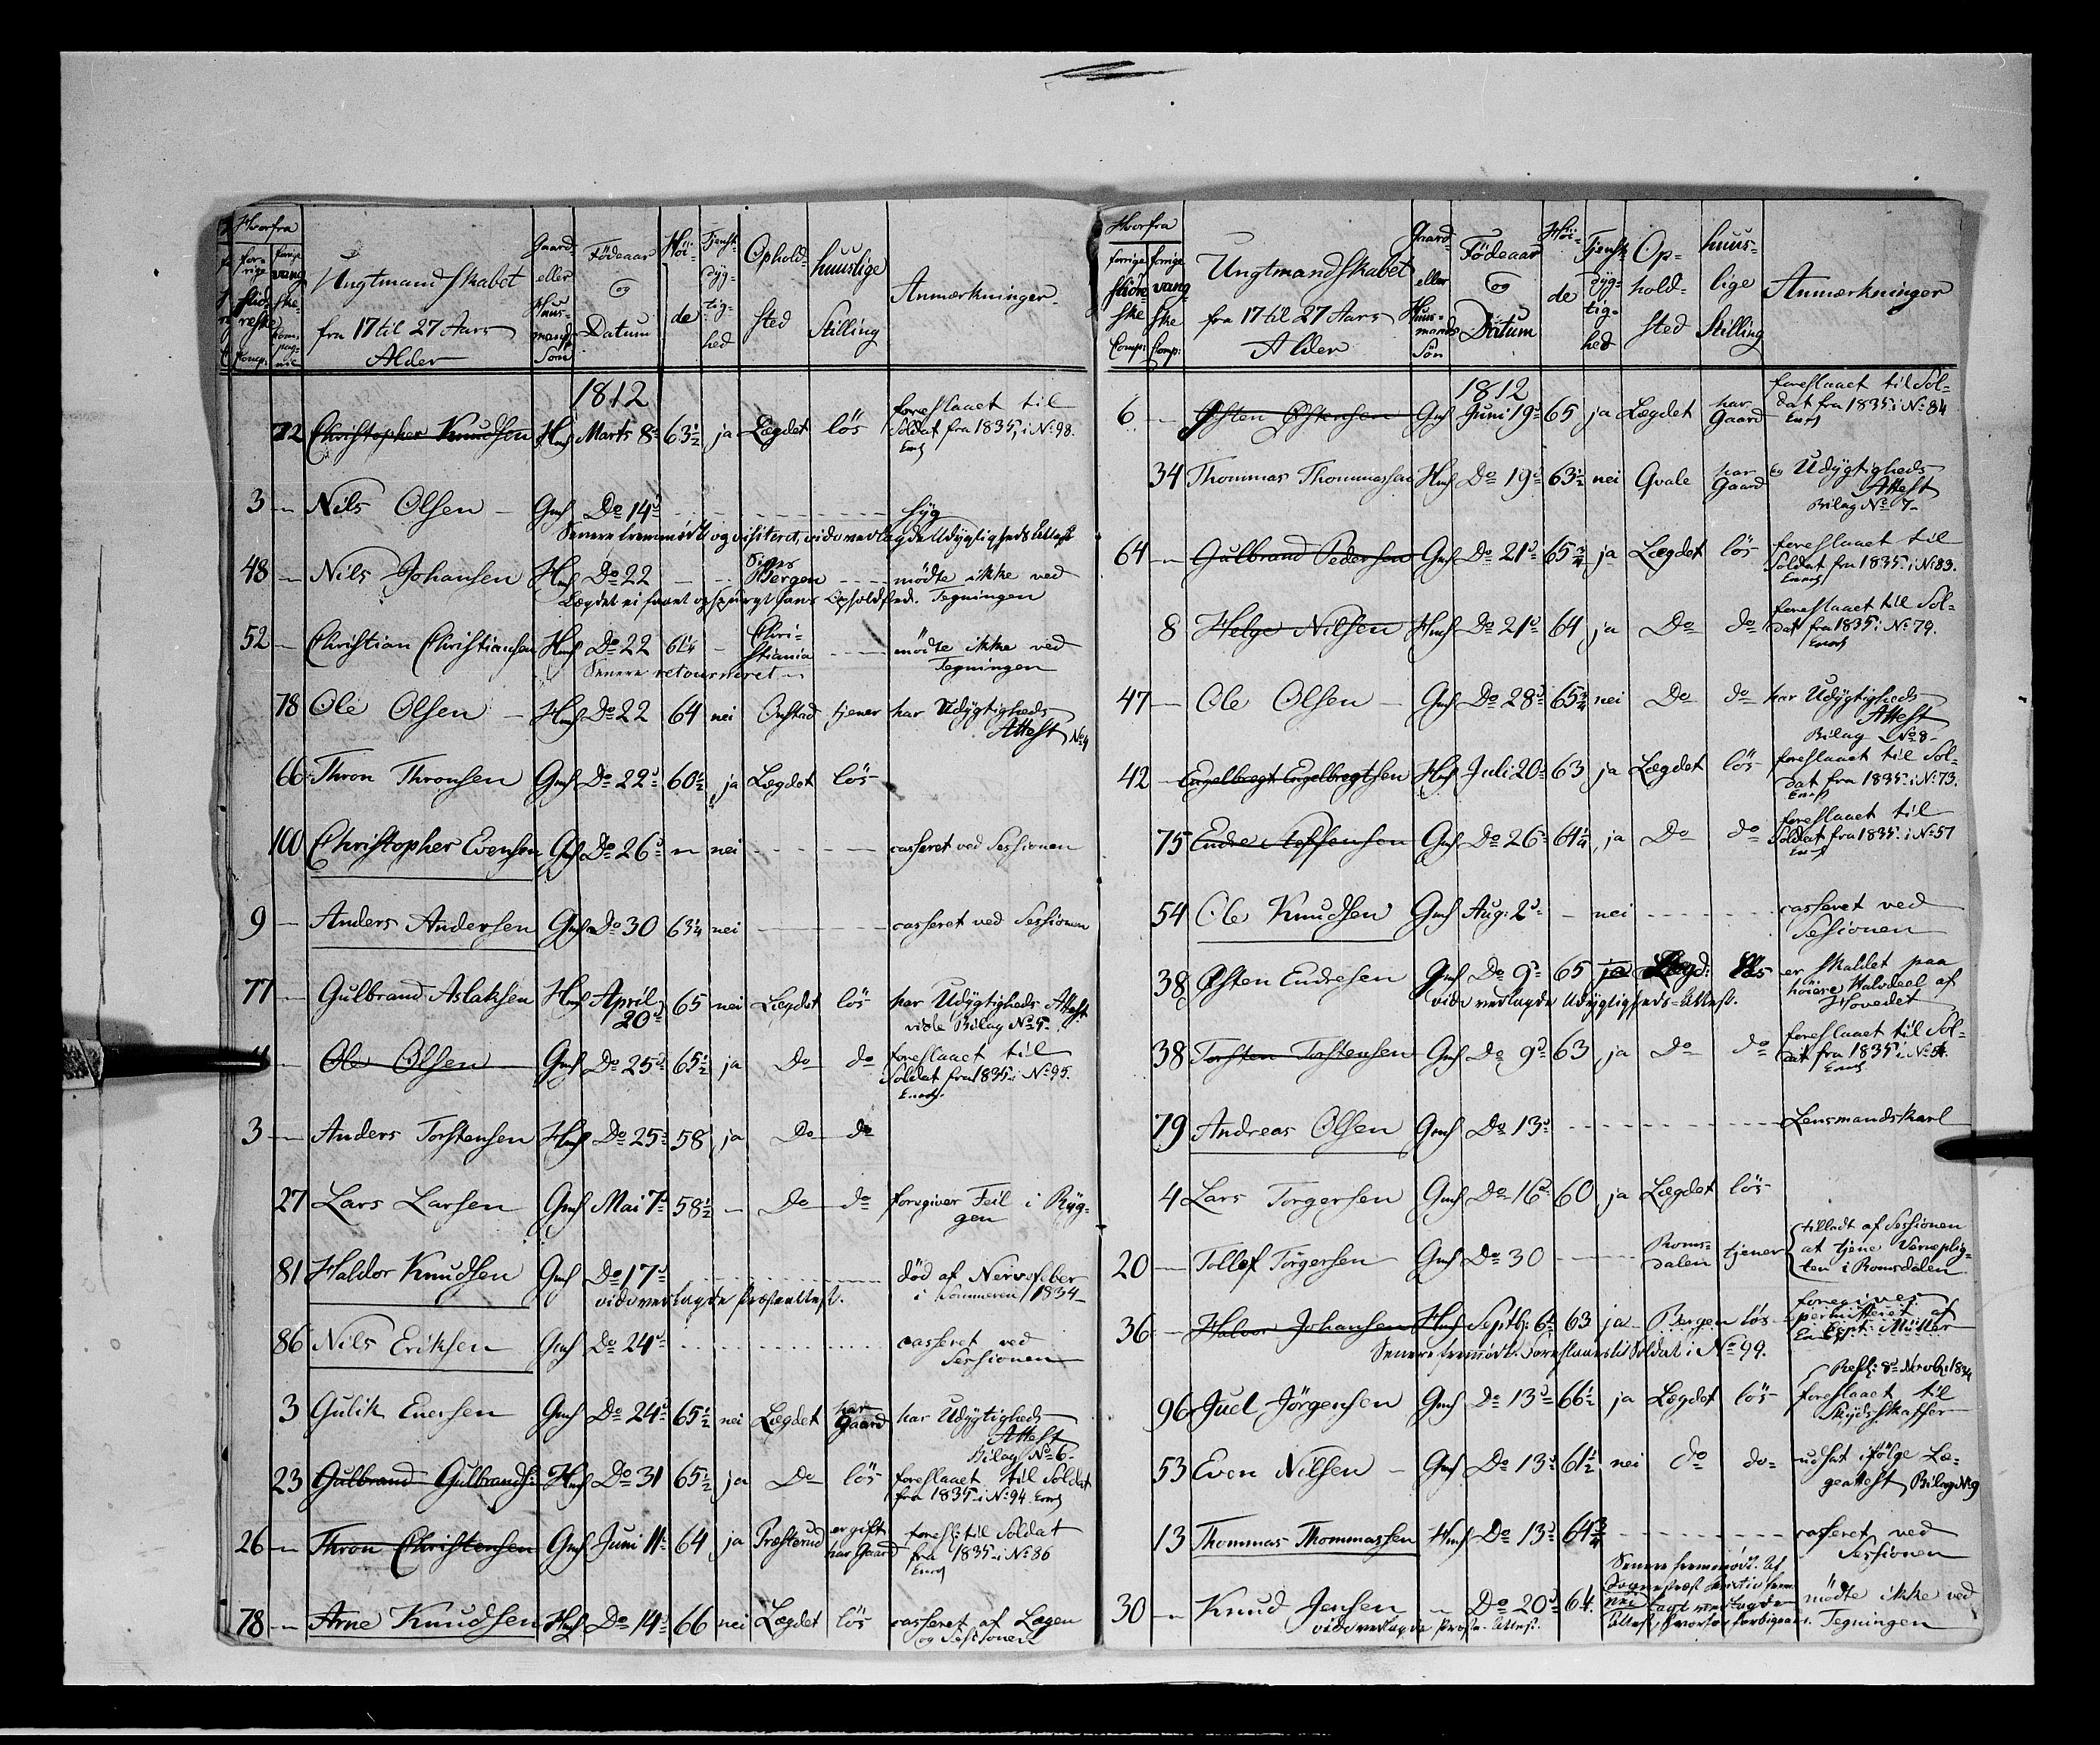 Hvorfra
forrige Slidreske Comp:
forrige vangske Compagnie
Ungtmandskabet
fra 17 til 27 Aars
Alder
Gaard- eller Huusmands Søn
Födeaar og Datum
Höide
Tjenstdygtighed
Opholdsted
huuslige Stilling
Anmærkninger
1812
72 Christopher Knudsen Hms Marts 8d 63½ ja Lægdet lös foreslaaet til
Soldat fra 1835 i No 98.
3 — Nils Olsen — Gms Do 14d syg
Senere fremmødt og visiteret, vide vedlagde Udygtigheds Attest
48 — Nils Johansen Hms Do 22 — Bergen mödte ikke ved
Tegningen
Lægdet ei faaet opspurgt hans Opholdsted.
52 — Christian Christiansen Hms Do 22 61¼ — Christiania mödte ikke ved
Tegningen
Senere retourneret
78 Ole Olsen — Hms Do 22 64 nei Onstad tjener har Udygtigheds
Attest No 4
66 Thron Thronsen Gms Do 22d 60½ ja Lægdet lös
100 Christopher Evensen Gms Do 26d — nei casseret ved Sessionen
9 — Anders Andersen Gms Do 30 63¼ nei casseret ved Sessionen
77 — Gulbrand Aslaksen Hms April 20d 65 nei Lægdet lös har Udygtigheds Attest
vide Bilag No 5
— Ole Olsen Gms Do 25d 65½ ja Do do foreslaaet til
Soldat fra 1835 i No 95.
3 — Anders Torstensen Hms Do 25d 58 ja Do do
27 Lars Larsen Gms Mai 7d 58½ — Do do foregiver Feil i Ryg-
gen
81 Haldor Knudsen Gms Do 17d död af Nervefeber
i Sommeren 1834
vide vedlagde Præsteattest.
86 Nils Eriksen Gms Do 24d casseret ved
Sessionen
3 Gulik Evensen Gms Do 24d 65½ nei Lægdet har Gaard har Udygtigheds
Attest
Bilag No 6
23 Gulbrand Gulbrands: Hms Do 31 65½ ja Do lös foreslaaet til Soldat
fra 1835 i No 94
26 — Thron Christensen Gms Juni 11d 64 ja Præsterud er gift har Gaard foresl: til Soldat
fra 1835 i No 86
78 — Arne Knudsen Hms Do 14d 66 nei Lægdet lös casseret af Lægen
og Sessionen
Hvorfra
forrige Slidreske Comp:
forrige vangske Comp:
Ungtmandskabet
fra 17 til 27 Aars
Alder
Gaard- eller Huusmands Søn
Födeaar og Datum
Höide
Tjenstdygtighed
Opholdsted
huuslige Stilling
Anmærkninger
1812
6 — Østen Østensen Gms Juni 19d 65 ja Lægdet har Gaard foreslaaet til Sol-
dat fra 1835 i No 84
34 Thommas Thommassen Hms Do 19d 63½ nei Qvale har Gaard Udygtigheds
Attest
Bilag No 7
64 — Gulbrand Pedersen Gms Do 21d 65¾ ja Lægdet lös foreslaaet til
Soldat fra 1835 i No 83.
8 Helge Nilsen Hms Do 21d 64 ja Do do foreslaaet til Sol-
dat fra 1835 i No 79.
47 — Ole Olsen — Gms Do 28d 65¾ nei Do do har Udygtigheds
Attest
Bilag No 8
42 — Engelbregt Engelbregtsen Hms Juli 20d 63 ja Lægdet lös foreslaaet til Sol-
dat fra 1835 i No 73.
75 Endre Steffensen Gms Do 26d 61¼ ja Do do foreslaaet til
Soldat fra 1835 i No 57
54 Ole Knudsen Gms Aug: 2d — nei casseret ved
Sessionen
38 Østen Endresen Gms Do 9d 65 ja Lægd: lös er skaldet paa
höiere Halvdeel af
Hovedet
vide vedlagde Udygtigheds-Attest.
38 Torsten Torstensen Gms Do 9d 63 ja Do do foreslaaet til Sol-
dat fra 1835 i No 54.
79 Andreas Olsen Gms Do 13d Lensmandskarl
4 Lars Torgersen Gms Do 16d 60 ja Lægdet lös
20 — Tollef Torgersen Gms Do 30 — Romsdalen tjener tilladt af Sessionen
at tjene Værneplig-
ten i Romsdalen
36 — Halvor Johansen Hms Septb: 6d 63 ja Bergen lös foregives
permitteret af
Capt: Müller
Senere fremmödt. Foreslaaet til Soldat i No 99.
Resl: 8d Novbr 1834
96 Juel Jörgensen Gms Do 13d 66½ ja Lægdet lös foreslaaet til
Skydsskaffer
53 Even Nilsen — Gms Do 13d 61½ nei do do udsat ifölge Læ-
geattest, Bilag No 9
13 Thommas Thommassen Hms Do 13d 64¾ casseret ved
Sessionen
30 — Knud Jensen — Do 20d 64. nei mödte ikke ved
Tegningen
vide vedlagde Præste-Attest.